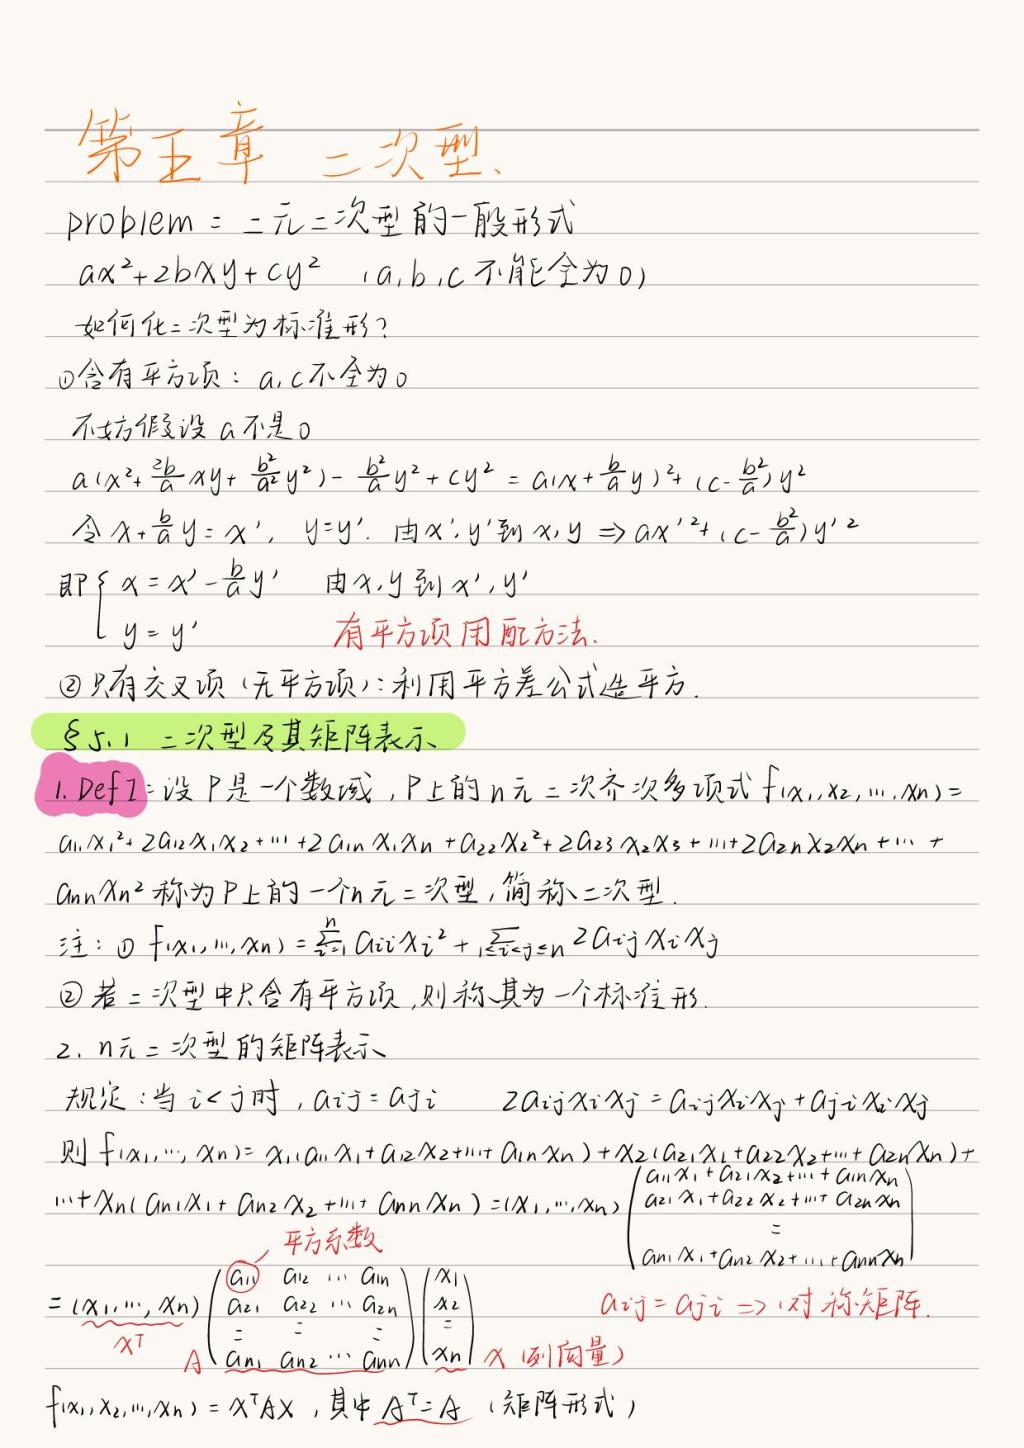 第五章 二次型.
problem: 二元二次型的一般形式
ax²+2bxy+cy² (a,b,c不能全为0)
如何化二次型为标准形?
①含有平方项: a,c不全为0
不妨假设a不是0
a(x²+\frac{2b}{a}xy+\frac{b²}{a²}y²)-\frac{b²}{a}y²+cy²=a(x+\frac{b}{a}y)²+(c-\frac{b²}{a})y²
令x+\frac{b}{a}y=x', y=y'. 由x',y'到x,y ⇒ ax'²+(c-\frac{b²}{a})y'²
即{ x=x'-\frac{b}{a}y' 由x,y到x',y'
y=y' 有平方项用配方法.
②只有交叉项(无平方项):利用平方差公式造平方.
§5.1 二次型及其矩阵表示
1. Def1:设P是一个数域,P上的n元二次齐次多项式f(x₁,x₂,…,xn)=
a₁₁x₁²+2a₁₂x₁x₂+…+2a₁nx₁xn+a₂₂x₂²+2a₂₃x₂x₃+…+2a₂nx₂xn+…+
annxn²称为P上的一个n元二次型,简称二次型.
注:① f(x₁,…,xn)=\sum_{i=1}^{n}aᵢᵢxᵢ²+\sum_{1≤i<j≤n}2aᵢⱼxᵢxⱼ
②若二次型中只含有平方项,则称其为一个标准形.
2. n元二次型的矩阵表示
规定:当i<j时,aᵢⱼ=aⱼᵢ 2aᵢⱼxᵢxⱼ=aᵢⱼxᵢxⱼ+aⱼᵢxᵢxⱼ
则f(x₁,…,xn)=x₁(a₁₁x₁+a₁₂x₂+…+a₁nxn)+x₂(a₂₁x₁+a₂₂x₂+…+a₂nxn)+
…+xn(an₁x₁+an₂x₂+…+annxn)=(x₁,…,xn)
(a₁₁x₁+a₂₁x₂+…+a₁nxn
a₂₁x₁+a₂₂x₂+…+a₂nxn
⋮
an₁x₁+an₂x₂+…+annxn)
平方系数
=(x₁,…,xn) (a₁₁ a₁₂ … a₁n
a₂₁ a₂₂ … a₂n
⋮ ⋮ ⋮
an₁ an₂ … ann) (x₁
x₂
⋮
xn)
xᵀ A x (列向量)
aᵢⱼ=aⱼᵢ ⇒ 对称矩阵.
f(x₁,x₂,…,xn)=xᵀAx,其中Aᵀ=A (矩阵形式)